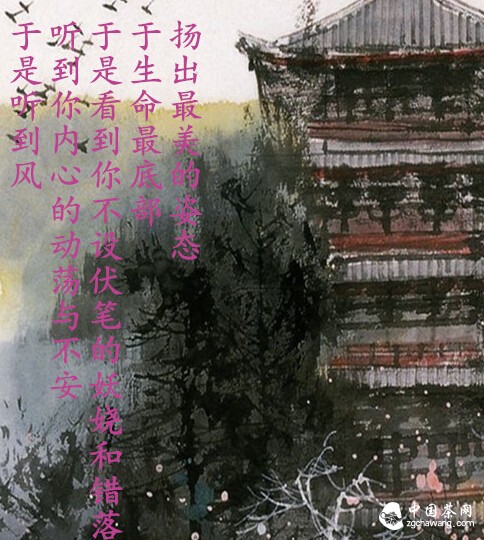 扬出最美的姿态
于生命最底部
于是看到你不设伏笔的妖娆和错落
听到你内心的动荡与不安
于是听到风
中国茶网
zgchawang.com